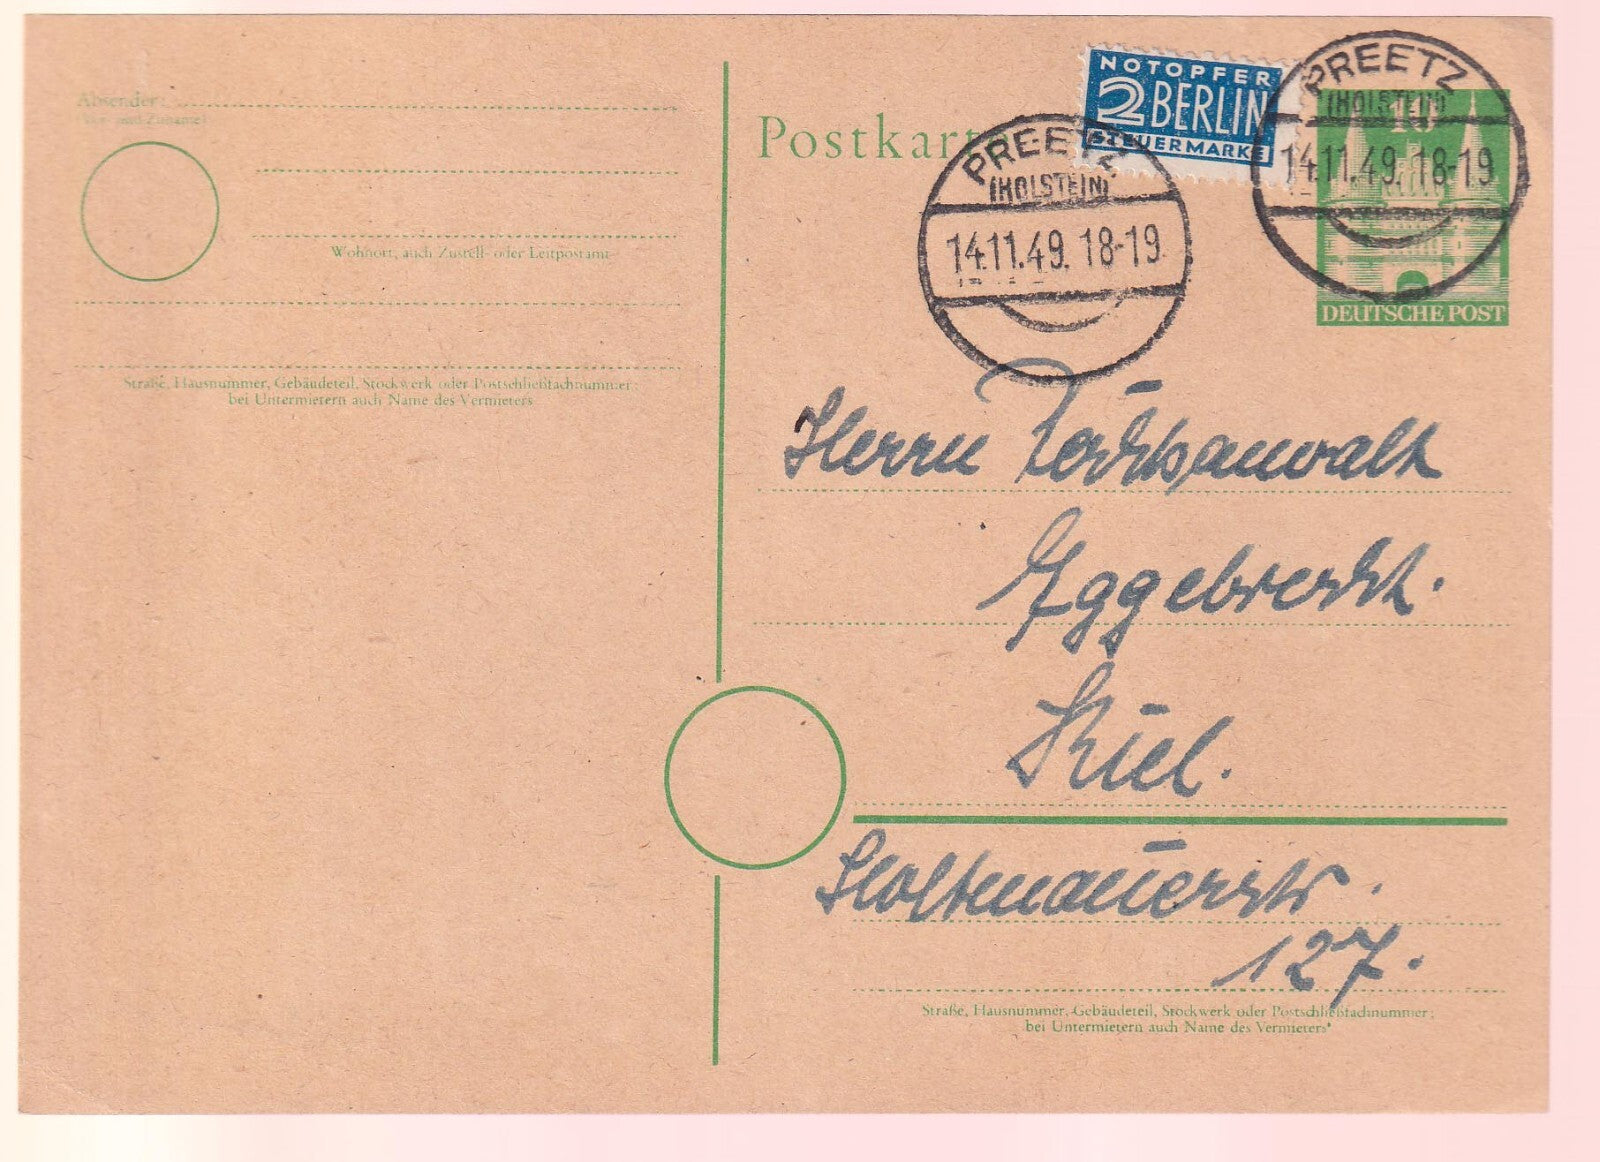 Absender:
(Vor- und Zuname)
Wohnort, auch Zustell- oder Leitpostamt
Straße, Hausnummer, Gebäudeteil, Stockwerk oder Postschließfachnummer;
bei Untermietern auch Name des Vermieters
Postkarte
NOTOPFER
2 BERLIN
STEUERMARKE
PREETZ
(HOLSTEIN)
14.11.49. 18-19
PREETZ
(HOLSTEIN)
14.11.49. 18-19
10
DEUTSCHE POST
Herrn Rechtsanwalt
Eggebrecht.
Kiel.
Holtenauerstr.
127.
Straße, Hausnummer, Gebäudeteil, Stockwerk oder Postschließfachnummer;
bei Untermietern auch Name des Vermieters